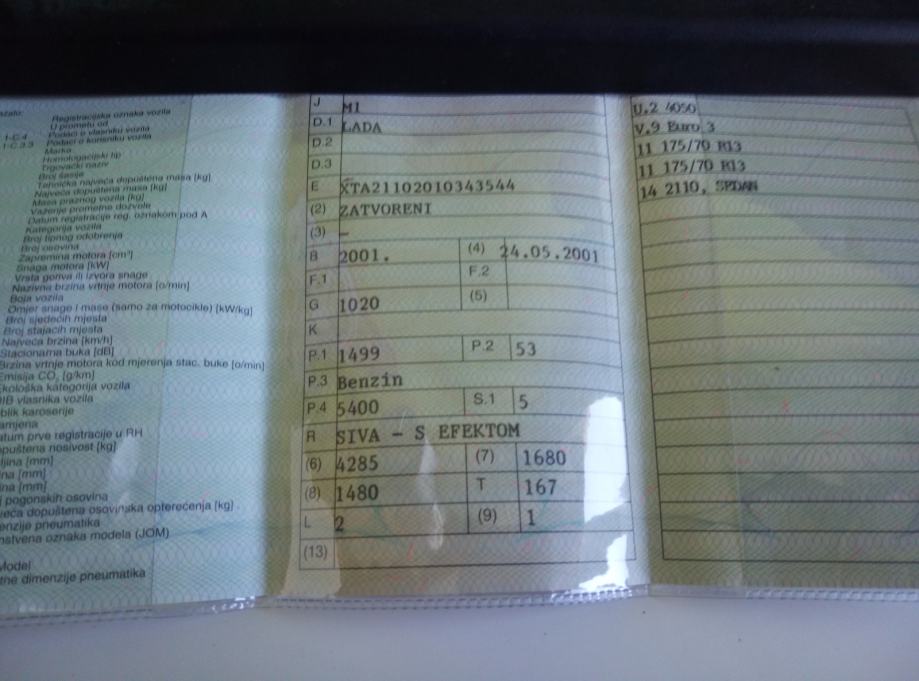 Registracijska oznaka vozila
U prometu od
1-C.4 Podaci o vlasniku vozila
1-C.3.3 Podaci o korisniku vozila
Marka
Homologacijski tip
Trgovački naziv
Broj šasije
Tehnička najveća dopuštena masa [kg]
Najveća dopuštena masa [kg]
Masa praznog vozila [kg]
Važenje prometne dozvole
Datum registracije reg. oznakom pod A
Kategorija vozila
Broj tipnog odobrenja
Broj osovina
Zapremina motora [cm³]
Snaga motora [kW]
Vrsta goriva ili izvora snage
Nazivna brzina vrtnje motora [o/min]
Boja vozila
Omjer snage i mase (samo za motocikle) [kW/kg]
Broj sjedećih mjesta
Broj stajaćih mjesta
Najveća brzina [km/h]
Stacionarna buka [dB]
Brzina vrtnje motora kod mjerenja stac. buke [o/min]
Emisija CO₂ [g/km]
Ekološka kategorija vozila
OIB vlasnika vozila
blik karoserije
amjena
atum prve registracije u RH
opuštena nosivost [kg]
ljina [mm]
ina [mm]
ina [mm]
j pogonskih osovina
veća dopuštena osovinska opterećenja [kg]
enzije pneumatika
nstvena oznaka modela (JOM)
Model
tne dimenzije pneumatika
J M1
D.1 LADA
D.2
D.3
E XTA21102010343544
(2) ZATVORENI
(3) –
B 2001. (4) 24.05.2001
F.1 F.2
G 1020 (5)
K
P.1 1499 P.2 53
P.3 Benzin
P.4 5400 S.1 5
R SIVA - S EFEKTOM
(6) 4285 (7) 1680
(8) 1480 T 167
L 2 (9) 1
(13)
U.2 4050
V.9 Euro 3
11 175/70 R13
11 175/70 R13
14 2110, SEDAN